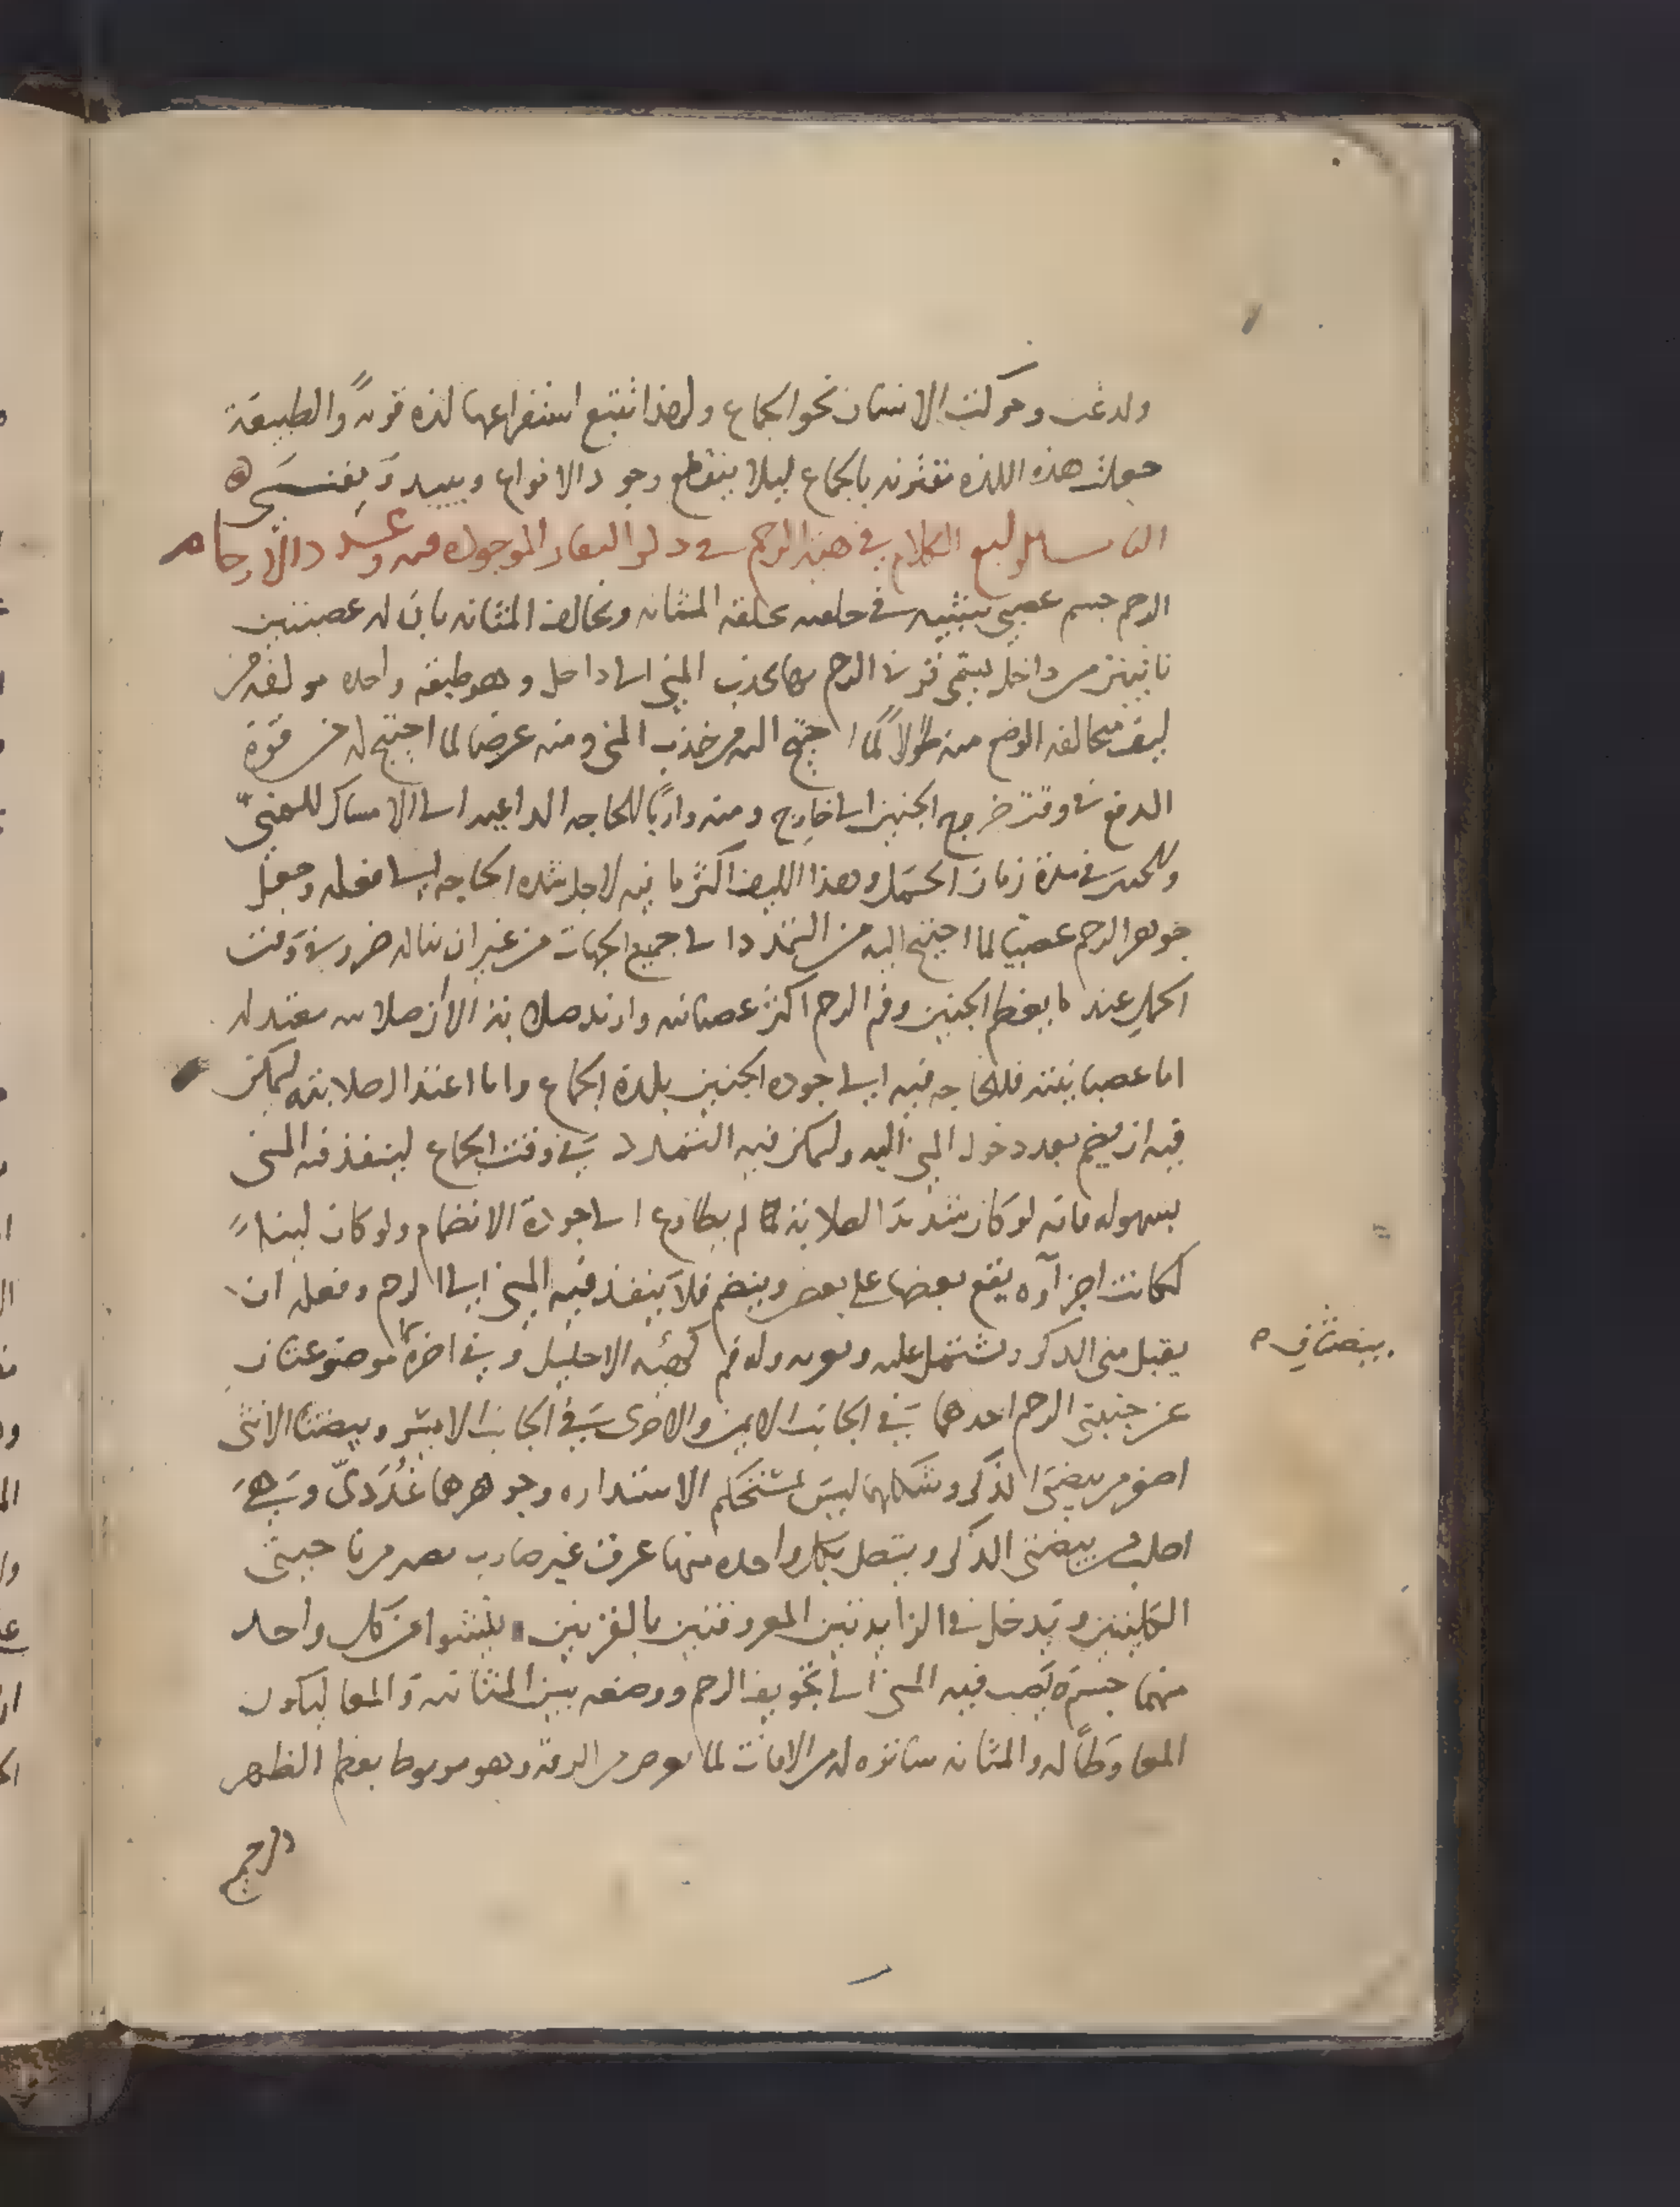 ولدغت وحركت الانسان نحو الجماع ولهذا تتبع استفراعها لذه قويةً والطبيعة
جعلت هذه اللذه تقترن بالجماع ليلا ينقطع وجود الانواع ويبيد ويفنى
الكلام في هيئه الرحم الموجوده فيه وعدد الارحام
الرحم جسم عصبي شبيه في خلقته بخلقه المثانه ويخالف المثانه بان له عصبتين
ناتيتين من داخل يسمى قرني الرحم بهما يجذب المني الى داخل وهو طبقه واحده مولفه من
ليف مخالف الوضع منه طولاً لما احتيج اليه من جذب المني ومنه عرضا لما احتيج له من قوة
الدفع في وقت خروج الجنين الى خارج ومنه ورابًا للحاجه الداعيه الى الامساك للمنيّ
وللجنين في مدة زمان الحمل وهذا الليف اكثر ما فيه لاجل شده الحاجه الى فعله وجعل
جوهر الرحم عصبيا لما احتيج اليه من التمدد الى جميع الجهات من غير ان يناله ضرر في وقت
الحمل عند ما يعظم الجنين وفم الرحم اكثر عصبانيه وازيد صلابة الا ان صلابته معتدله
اما عصبانيته فللحاجه فيه الى جوده الجنين بلذة الجماع واما اعتدال صلابته ليمكن
فيه ان ينضم بعد دخول المني اليه وليمكن فيه التمدد في وقت الجماع لينفذ فيه المني
بسهوله فانه لو كان شديد الصلابة لما لم يطاوع الى جودة الانضمام ولو كان لينا
لكانت اجزآوه يقع بعضها على بعض وينضم فلا ينفذ فيه المني الى الرحم وفعله ان
يقبل مني الذكر ويشتمل عليه وله فم كهيئه الاحليل وفي اخره موضوعتان
بيضتان
عن جنبتي الرحم احدهما في الجانب الايمن والاخرى في الجانب الايسر وبيضتا الانثى
اصغر من بيضتي الذكر وشكلهما ليس بمستحكم الاستداره وجوهرهما غُدَديّ وهي
اصلب من بيضتي الذكر ويتصل بكل واحده منهما عرق غير ضارب من ناحيتي
الكليتين ويدخل في الزايدتين المعروفتين بالقرنين ينشوا من كل واحد
منهما يصب فيه المني الى تجويف الرحم ووضعه بين المثانه والمعا ليكون
المعا وطآ له والمثانه ساتره له من الافات وهو مربوط بعظم الظهر